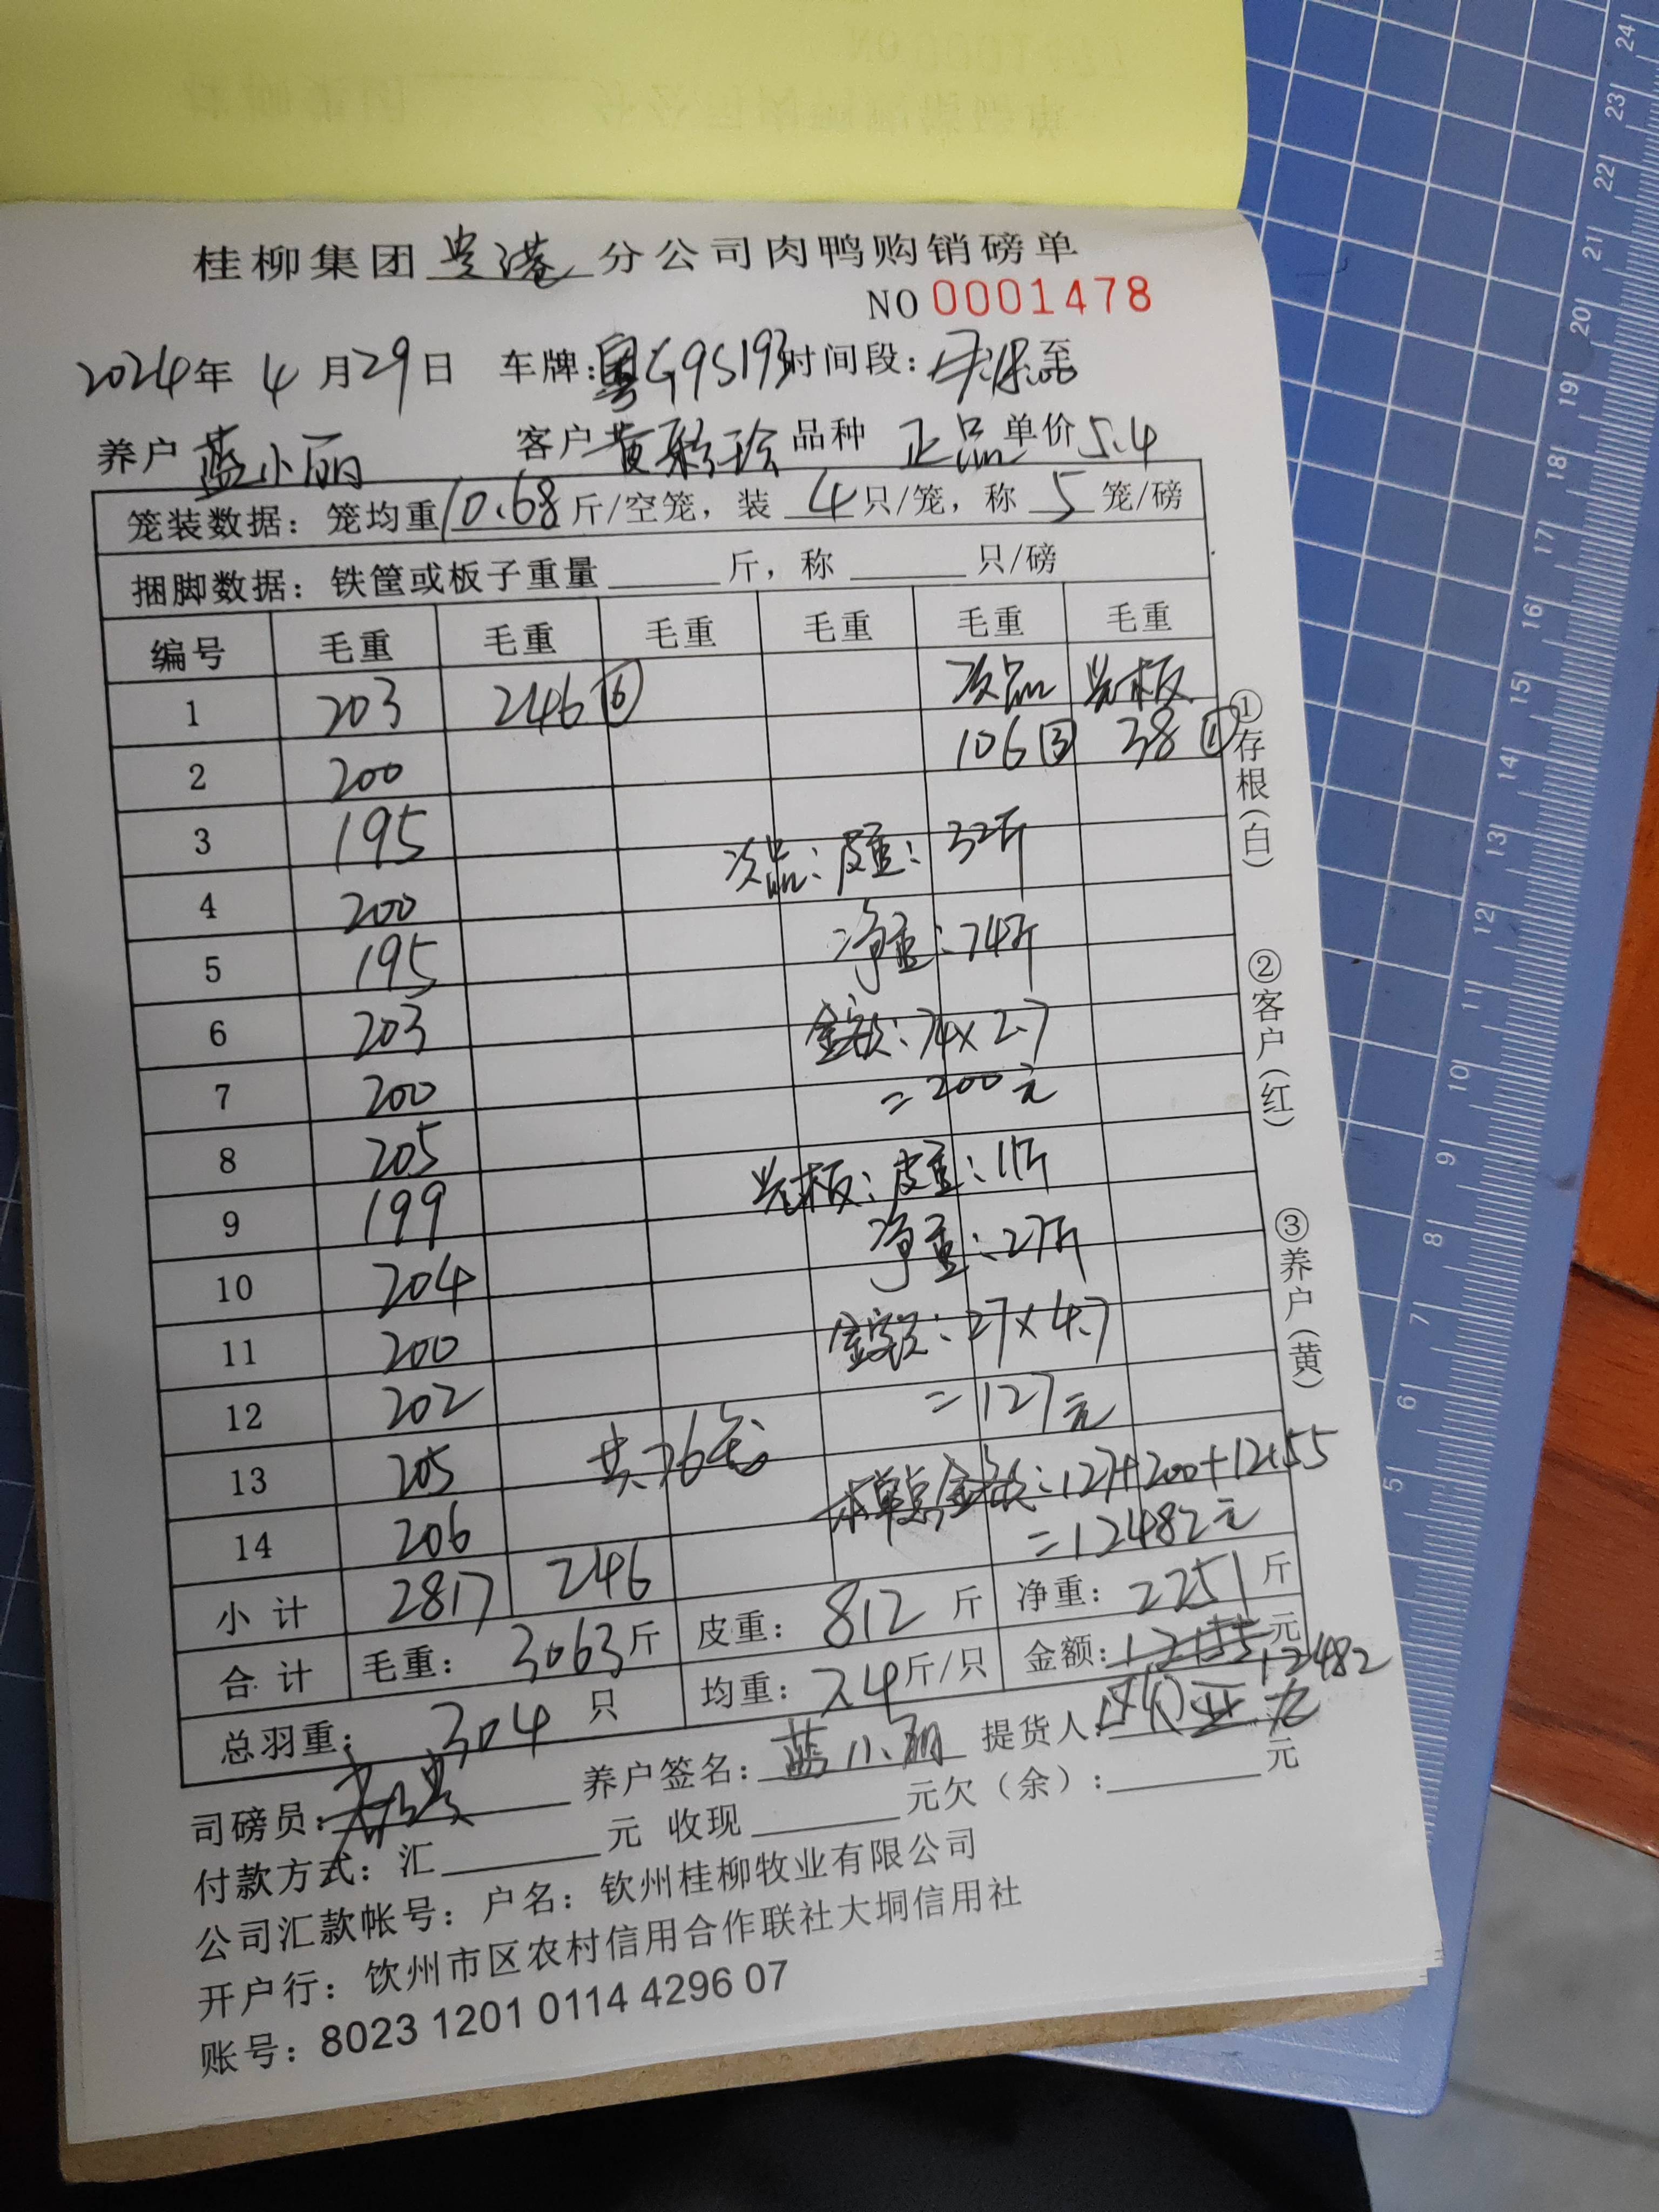 桂柳集团 贵港 分公司肉鸭购销磅单
NO 0001478
2024年 4月29日 车牌:粤G9S193 时间段: 至
养户 蓝小丽 客户 黄 珍 品种 正品 单价 5.4
笼装数据: 笼均重 10.68 斤/空笼, 装 4 只/笼, 称 5 笼/磅
捆脚数据: 铁筐或板子重量 斤, 称 只/磅
编号 毛重 毛重 毛重 毛重 毛重 毛重
1 203 246 ⑥ 次品 光板
2 200 106 ③ 38 ①
3 195
次品: 皮重: 32斤
4 200
净重: 74斤
5 195
6 203 金额: 74×2.7
7 200 =200元
8 205 光板: 皮重: 11斤
9 199 净重: 27斤
10 204
11 200 金额: 27×4.7
12 202 =127元
13 205 共76笼 本单总金额: 127+200+12155
14 206 =12482元
小计 2817 246
合计 毛重: 3063斤 皮重: 812 斤 净重: 2251斤
总羽重: 304 只 均重: 7.4斤/只 金额: 12155元 12482
司磅员: 养户签名: 蓝小丽 提货人:
付款方式: 汇 元 收现 元欠(余): 元
公司汇款帐号: 户名: 钦州桂柳牧业有限公司
开户行: 钦州市区农村信用合作联社大垌信用社
账号: 8023 1201 0114 4296 07
①存根(白) ②客户(红) ③养户(黄)
24
23
22
21
20
19
18
17
16
15
14
13
12
11
10
9
8
7
6
5